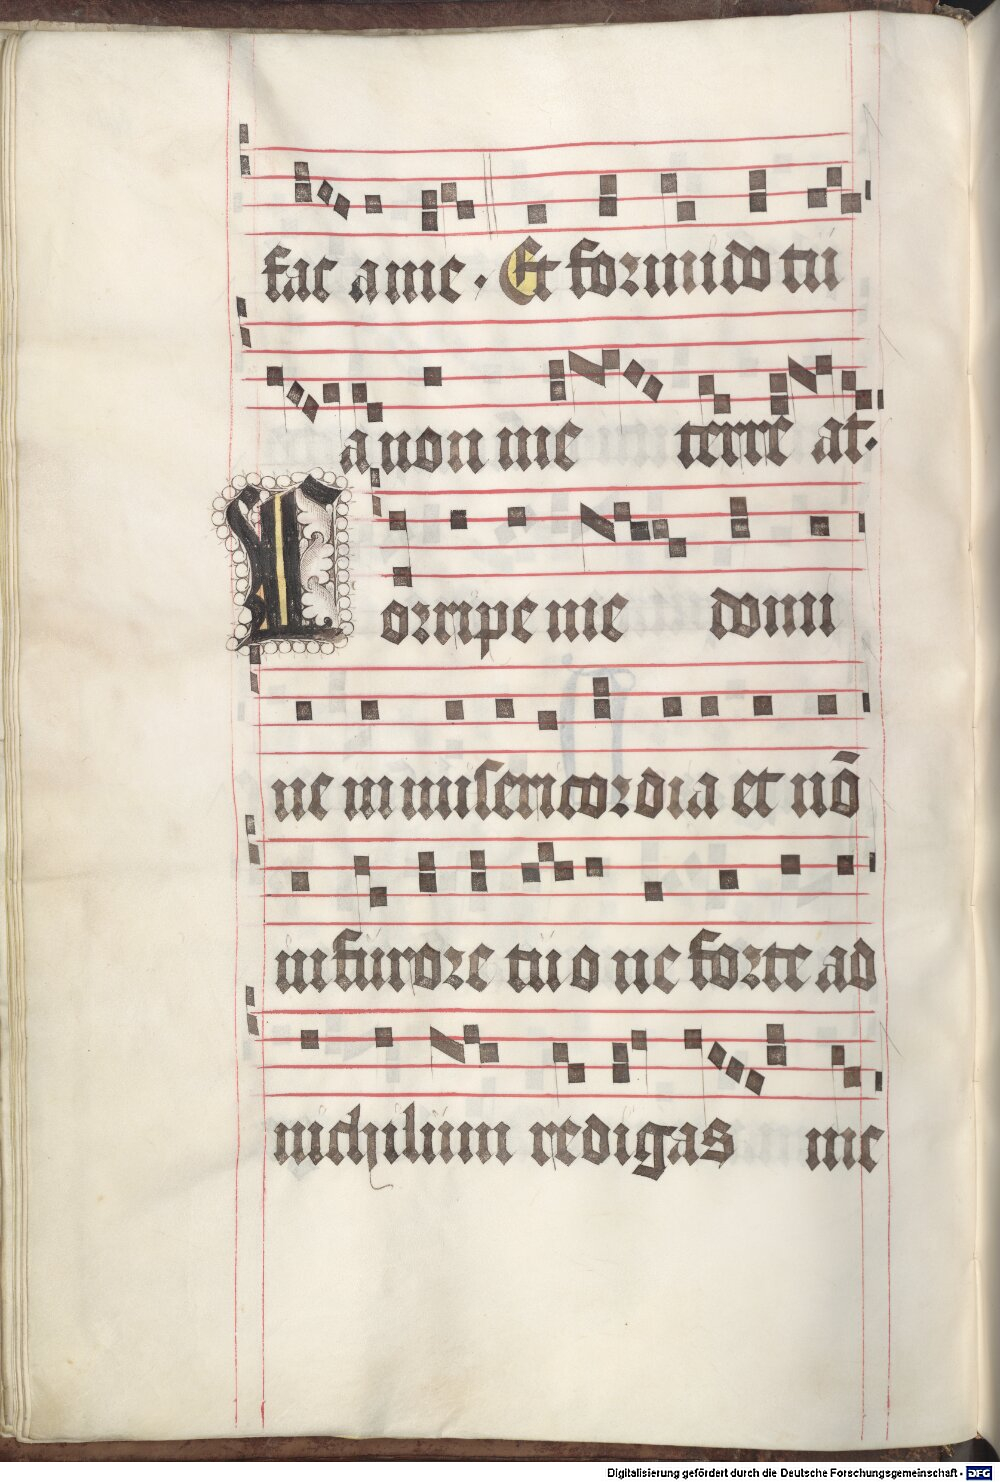 fac a me . Et formido tu
a non me terre at.
Corripe me domi
ne in misericordia et nō
in furore tuo ne forte ad
nichilum redigas me
Digitalisierung gefördert durch die Deutsche Forschungsgemeinschaft - DFG